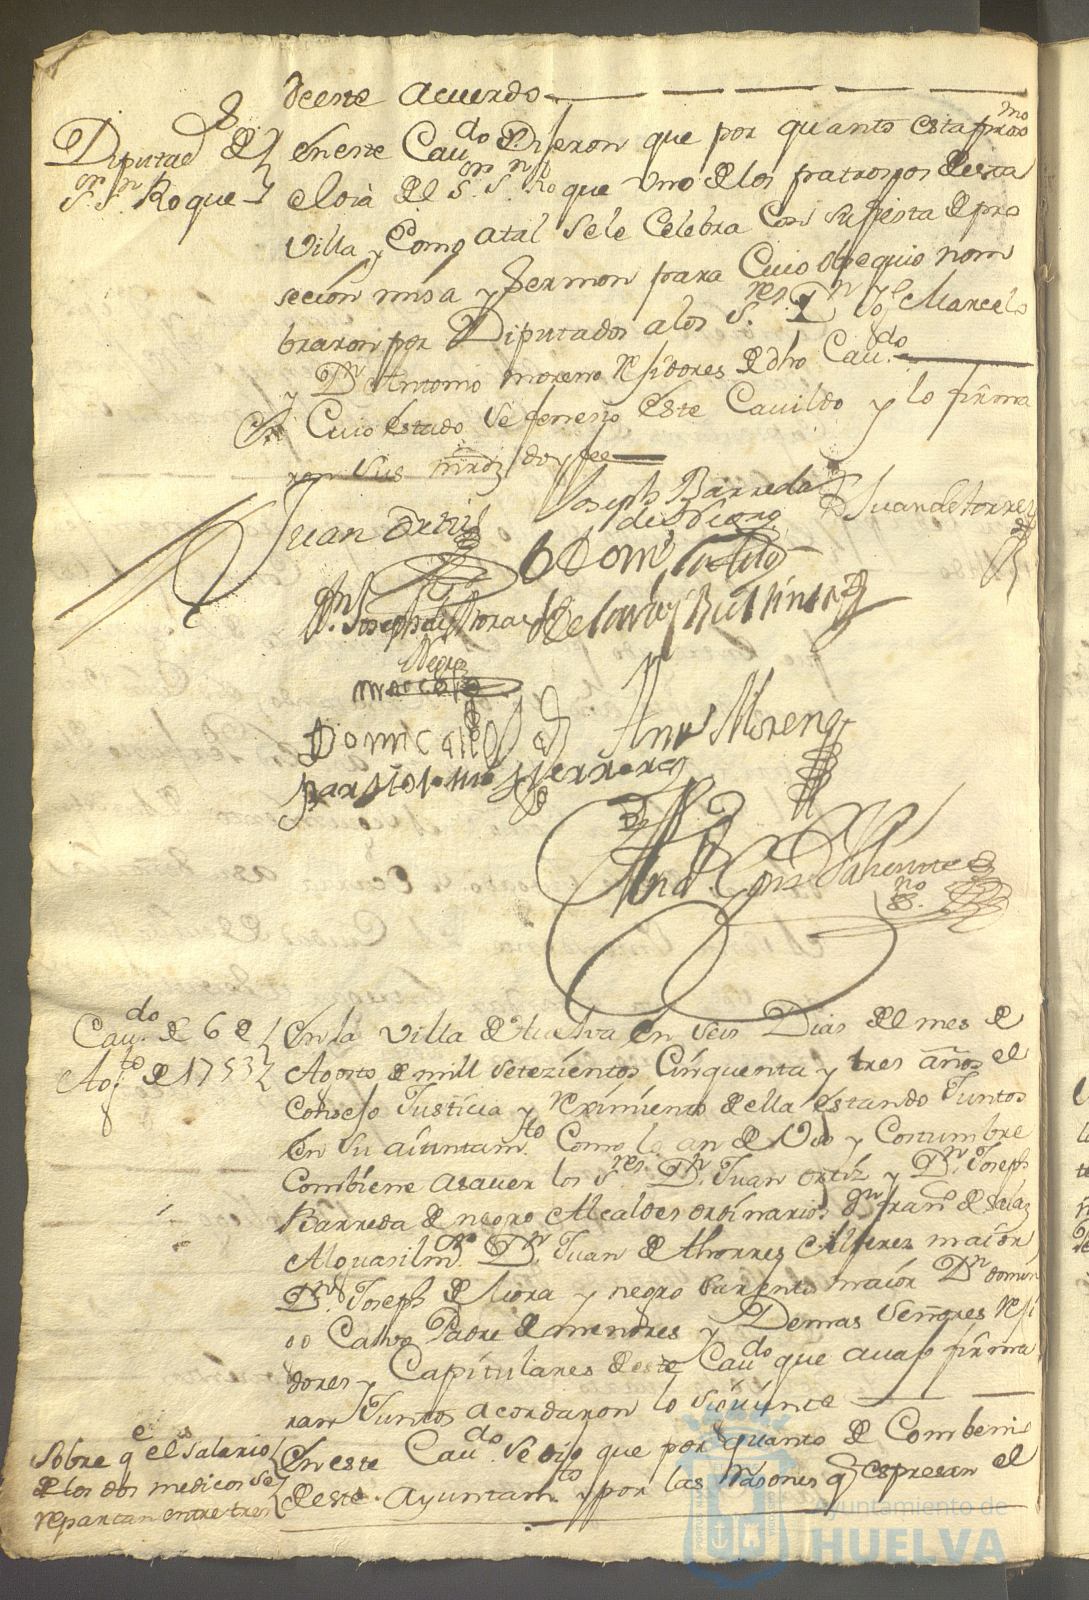 de este acuerdo
Diputac.on de
S.or S.n Roque
en este Cau.do Dijeron que por quanto esta proxmo
el dia del S.or S.n Roque uno de los patronos de esta
villa y Como atal sele Celebra Con su fiesta de pro
secion misa y sermon para Cuio obsequio nom
braron por Diputados a los S.res D.n Jph Marcelo
y D.n Antonio moreno rejidores de dho Cau.do
Cuio estado se feneció este Cauildo y lo firma
ron sus mrds doy fee
Juan Ortiz
Joseph Barreda
de Negro
Juan de torres
Dom.o Caluo
D.n Joseph de Mora
Negro
Marcelo
Antt.o Moreno
Bartolome Herrera
And.
no
Cau.do de 6 de
Ag.to de 1753
En la villa de Huelva en seis Dias del mes de
Agosto de mill setezientos Cinquenta y tres años el
Consejo Justicia y reximiento de ella estando Juntos
en su aiuntam.to Como lo an de Uso y Costumbre
Combiene asauer los S.res D.n Juan ortiz y D.n Joseph
Barreda de negro Alcaldes ordinarios D.n fran.co de
Alguasil m.or D.n Juan de thorres Alferez maior
D.n Joseph de Mora y negro maior D.n domin
go Calvo Padre de menores y Demas Señores reji
dores y Capitulares de este Cau.do que auajo firma
ran Juntos acordaron lo siguiente
Sobre q.e el salario
de los dos medicos se
repartan entre tres
En este Cau.do se dijo que por quanto de Combeni
de este Ayuntam.to y por las Rasones q espresan el
Ayuntamiento de
HUELVA